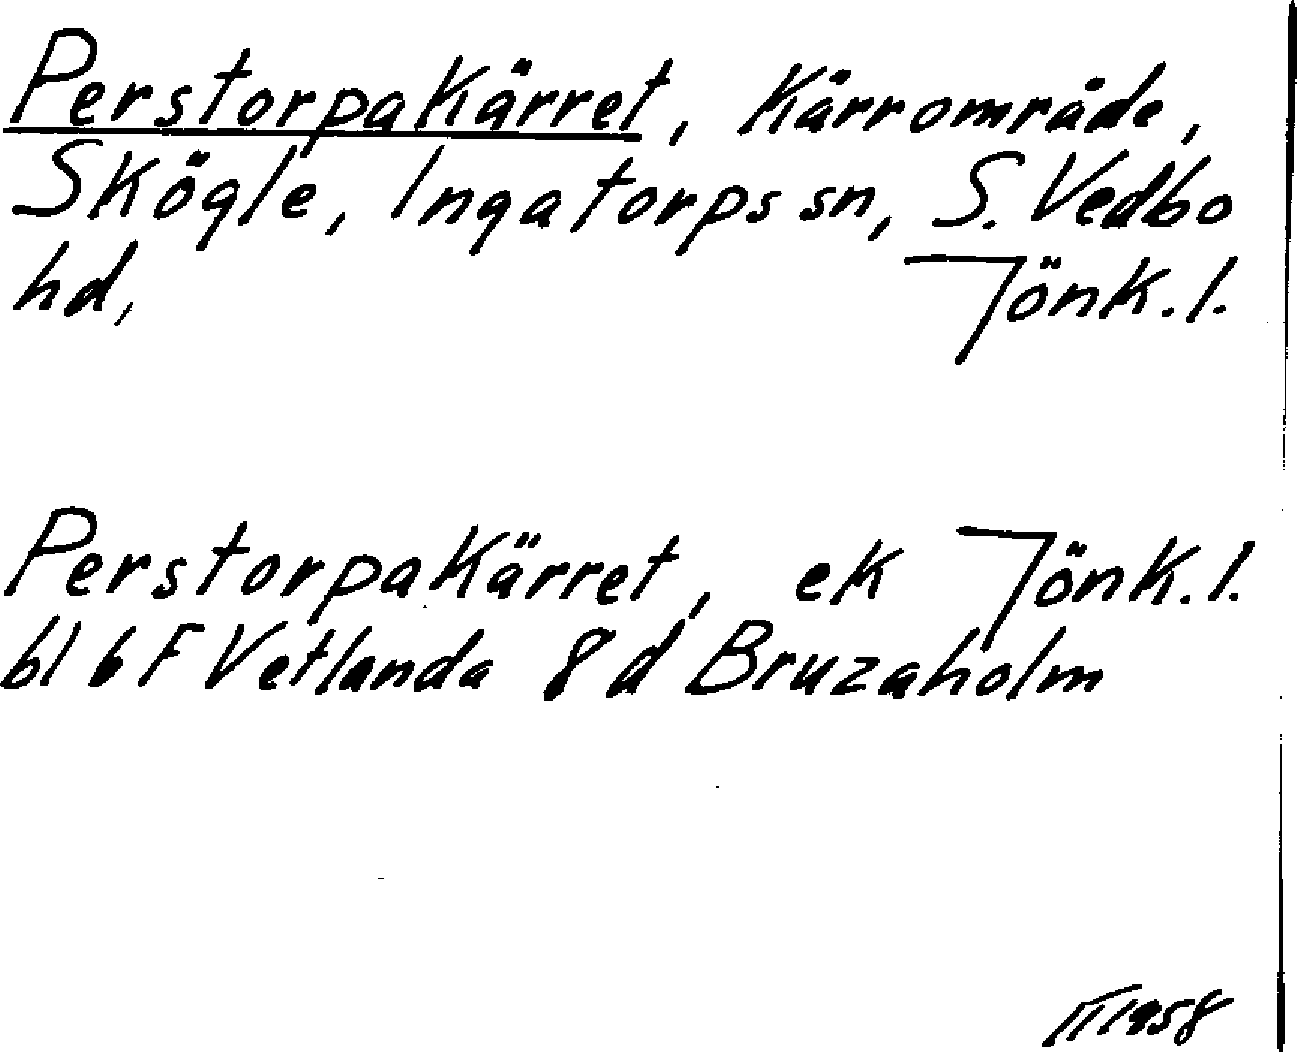 Perstorpakärret, Kärrområde,
Skögle, Ingatorps sn, S. Vedbo
hd, Jönk. l.
Perstorpakärret, ek Jönk. l.
bl 6 F Vetlanda 8 d Bruzaholm
1958